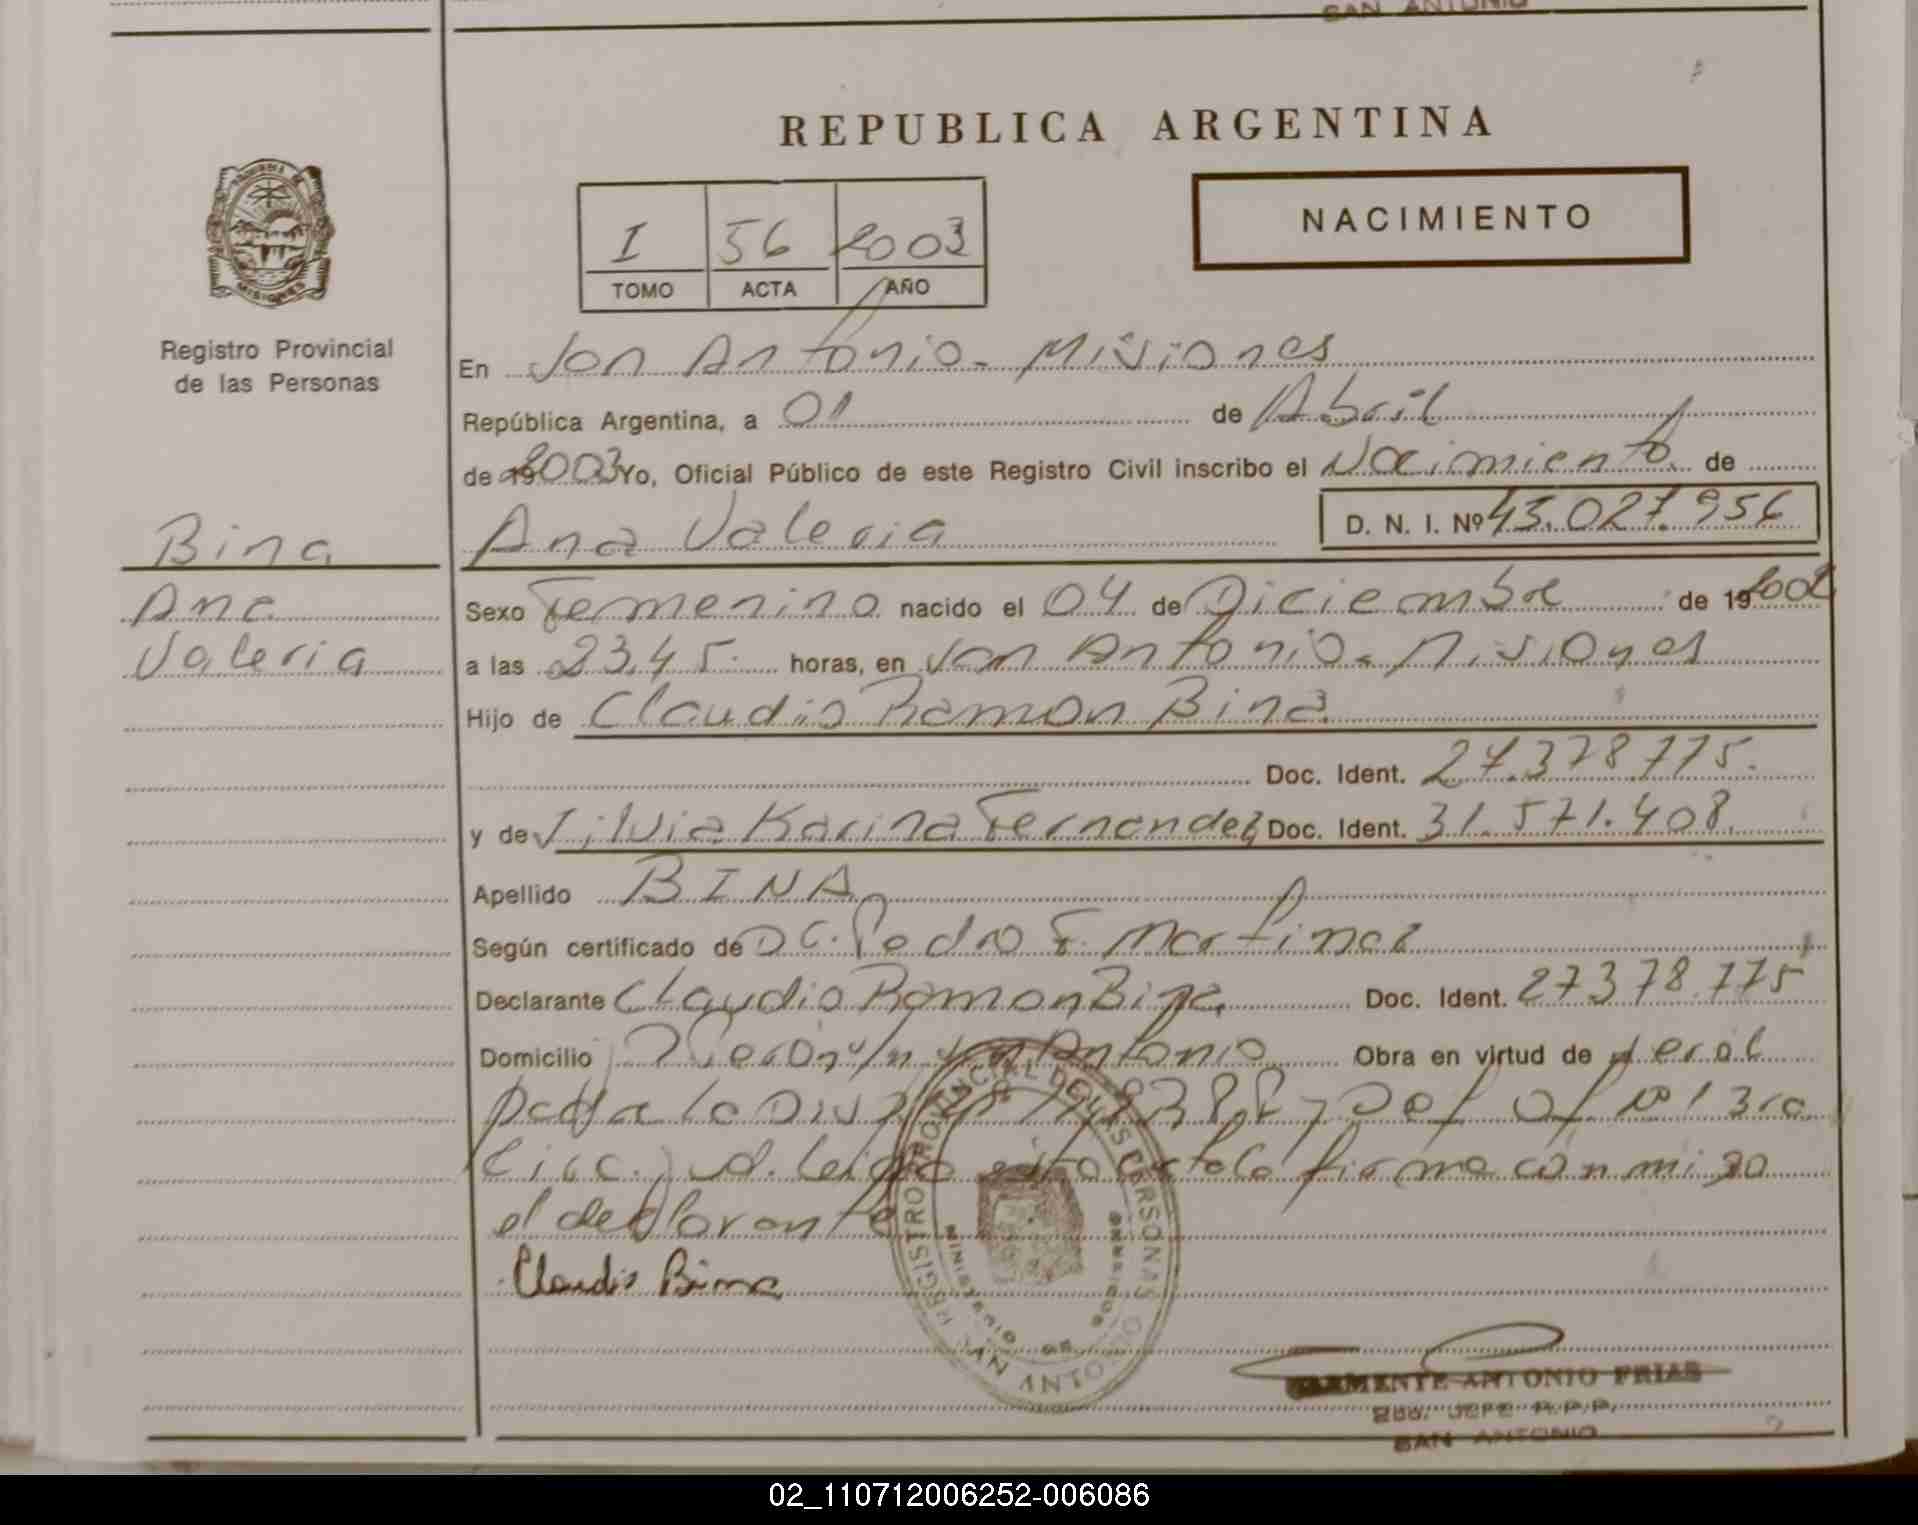 SAN ANTONIO
REPUBLICA ARGENTINA
NACIMIENTO
I 56 2003
TOMO ACTA AÑO
MISIONES
Registro Provincial
de las Personas
En San Antonio - Misiones
República Argentina, a 01 de Abril
de 19 2003 Yo, Oficial Público de este Registro Civil inscribo el Nacimiento de
Bina
Ana Valeria D. N. I. Nº 43.027.956
Ana
Valeria
Sexo Femenino nacido el 04 de Diciembre de 19 2002
a las 23,45 horas, en San Antonio - Misiones
Hijo de Claudio Ramon Bina
Doc. Ident. 27.378.775.
y de Silvia Karina Fernandez Doc. Ident. 31.571.408.
Apellido BINA
Según certificado de Dr. Pedro F. Martinez
Declarante Claudio Ramon Bina Doc. Ident. 27378.775
Domicilio San Antonio Obra en virtud de
Circ. Jud. Leida esta acta la firma con migo
el declarante
Claudio Bina
REGISTRO PROVINCIAL DE LAS PERSONAS
MINISTERIO DE GOBIERNO
SAN ANTONIO
ANTONIO FRIAS
JEFE R.P.P.
SAN ANTONIO
02_110712006252-006086